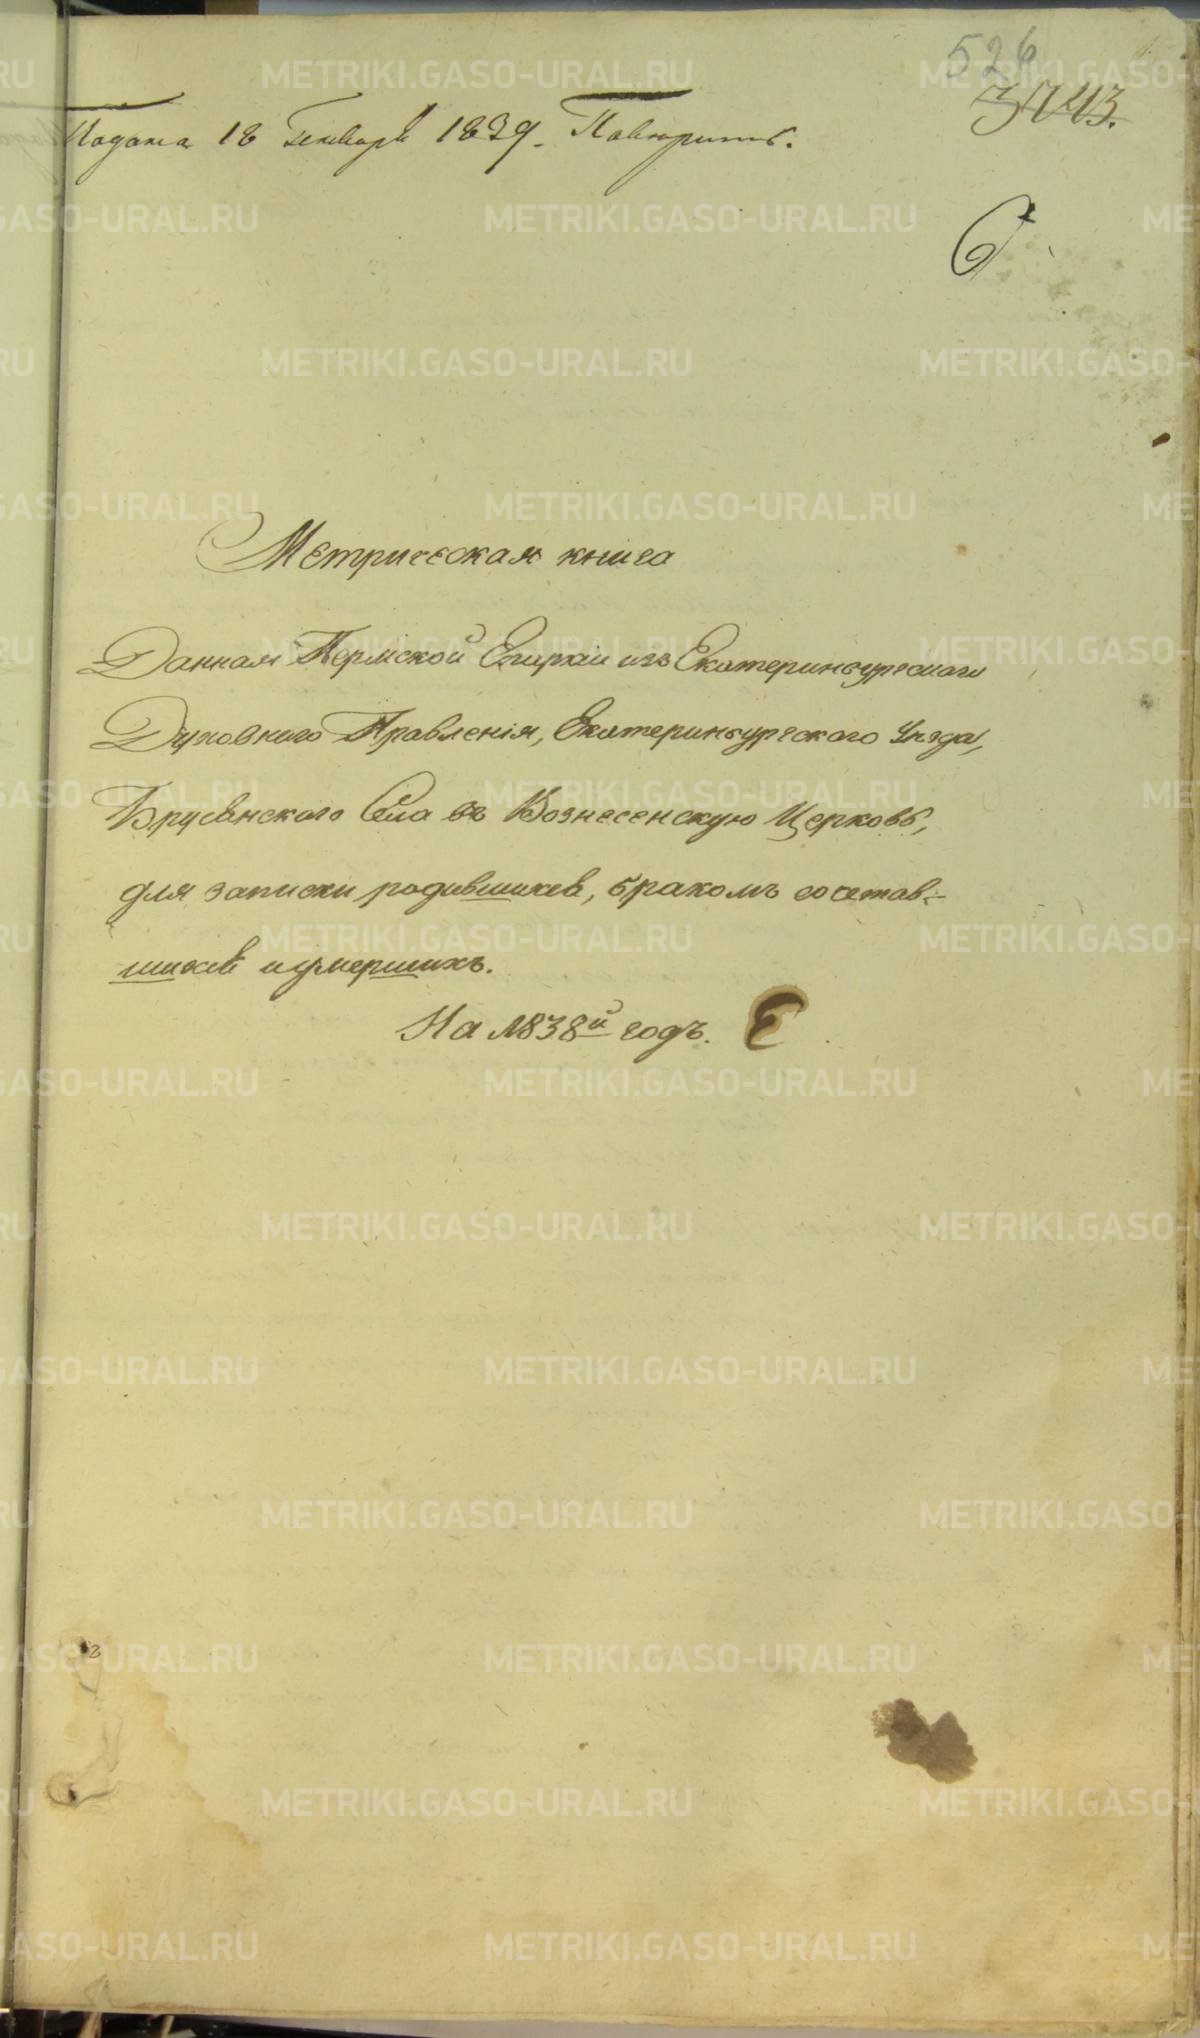 526
Подана 18 Генваря 1839. Повторить.
Метрическая книга
Данная Пермской Епархіи изъ Екатеринбургскаго
Духовнаго Правленія, Екатеринбургскаго Уѣзда,
Брусянскаго Села въ Вознесенскую Церковь,
для записки родившихся, бракомъ сочетав-
шихся и умершихъ.
На 1838й годъ.
METRIKI.GASO-URAL.RU